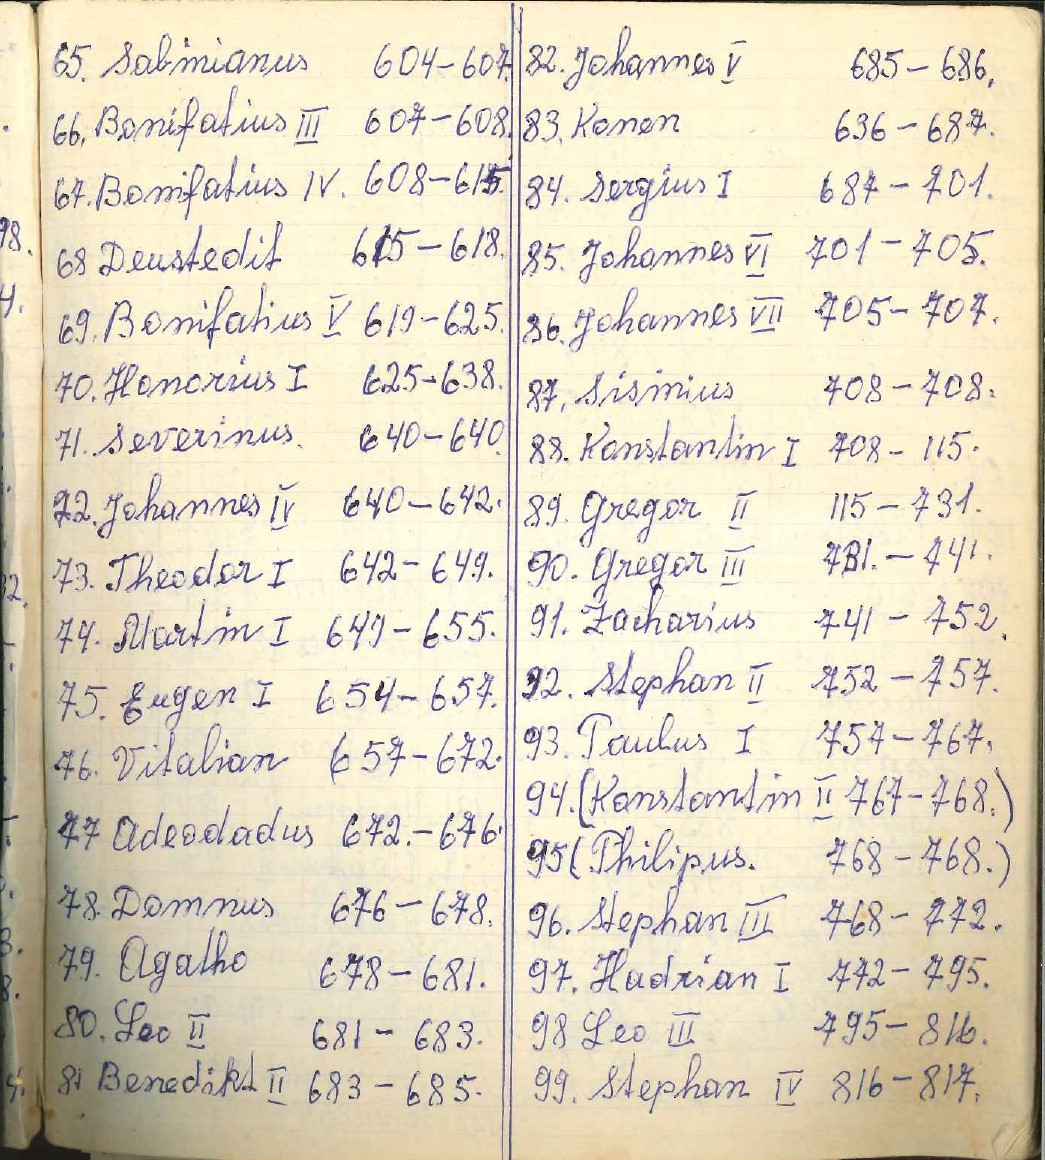 65. Sabinianus 604-607
66. Bonifatius III 607-608.
67. Bonifatius IV. 608-615.
68 Deustedit 615-618.
69. Bonifatius V 619-625.
70. Honorius I 625-638.
71. Severinus. 640-640
72. Johannes IV 640-642.
73. Theodor I 642-649.
74. Martin I 649-655.
75. Eugen I 654-657.
76. Vitalian 657-672.
77 Adeodadus 672.-676.
78. Domnus 676-678.
79. Agatho 678-681.
80. Leo II 681-683.
81 Benedikt II 683-685.
82. Johannes V 685-686.
83. Konon 636-687.
84. Sergius I 687-701.
85. Johannes VI 701-705.
86. Johannes VII 705-707.
87. Sisinius 708-708.
88. Konstantin I 708-115.
89. Gregor II 115-731.
90. Gregor III 731.-741.
91. Zacharius 741-752.
92. Stephan II 752-757.
93. Paulus I 757-767.
94. (Konstantin II 767-768.)
95 (Philipus. 768-768.)
96. Stephan III 768-772.
97. Hadrian I 772-795.
98 Leo III 795-816.
99. Stephan IV 816-817.